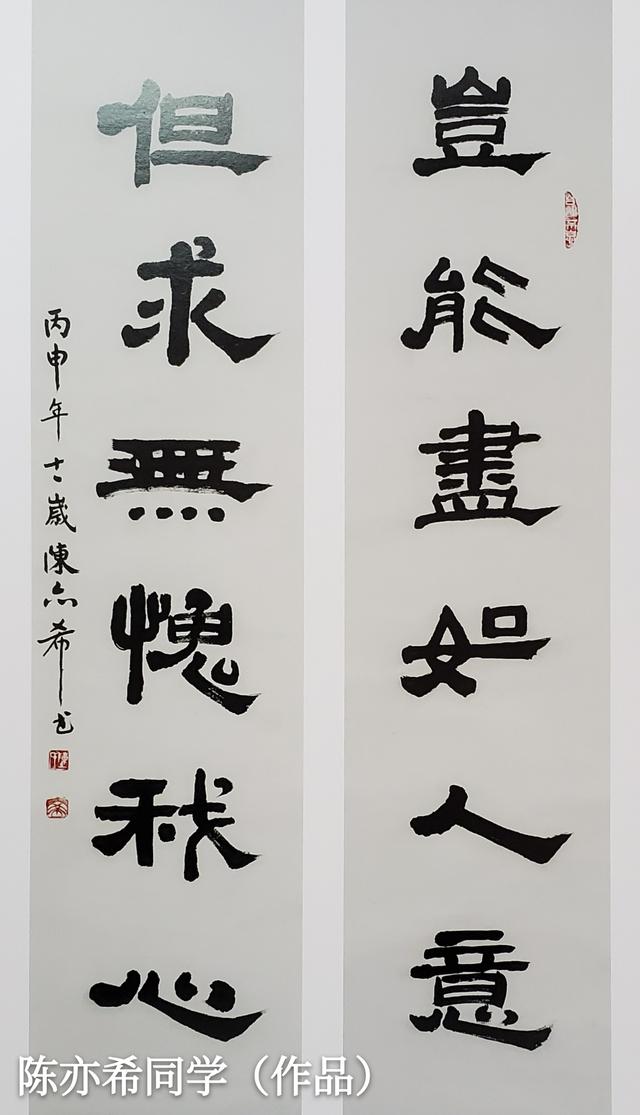 豈能盡如人意
但求無愧我心
丙申年十二歲陳亦希书
陈亦希同学（作品）